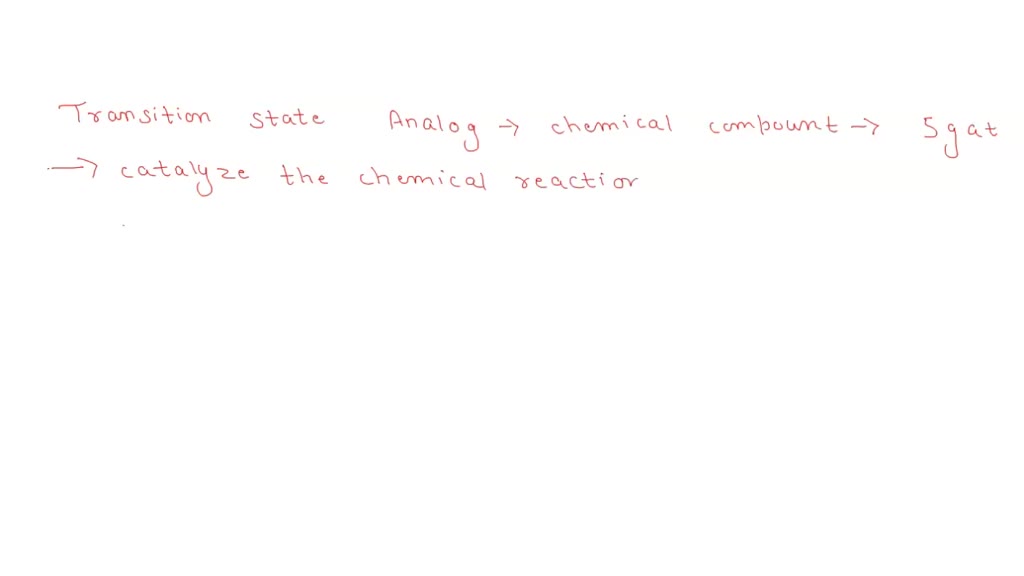 Transition state Analog → chemical compount → 5gat
→ catalyze the chemical reaction